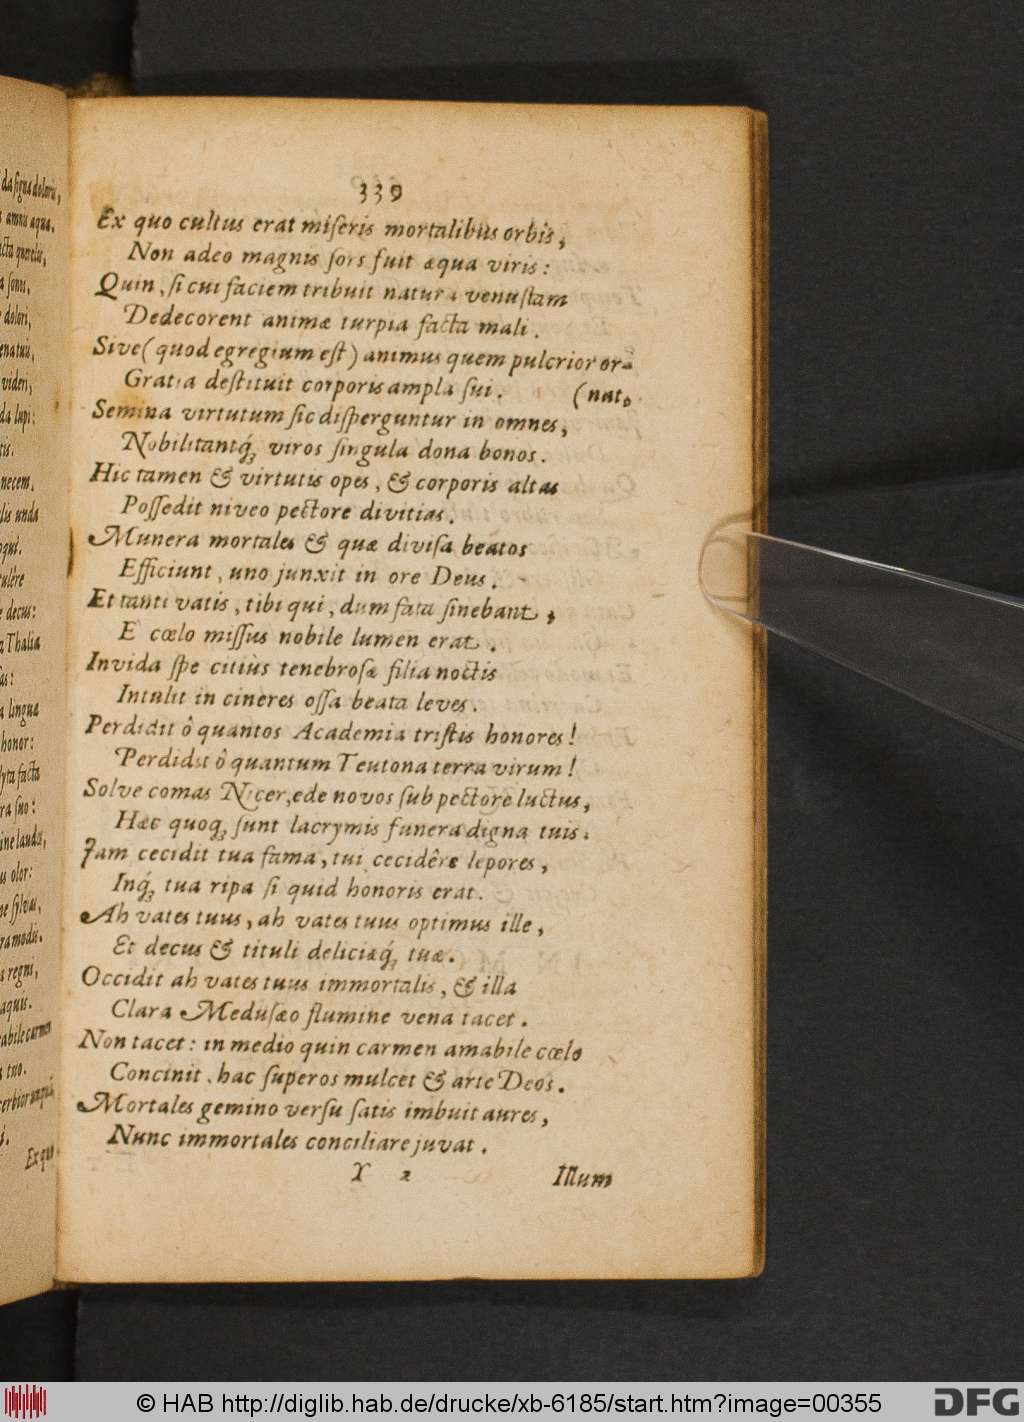 339
Ex quo cultus erat miſeris mortalibus orbis,
Non adeo magnis ſors fuit æqua viris:
Quin, ſi cui faciem tribuit natura venuſtam
Dedecorent animæ turpia facta mali.
Sive (quod egregium eſt) animus quem pulcrior or-
Gratia deſtituit corporis ampla ſui. (nat,
Semina virtutum ſic diſperguntur in omnes,
Nobilitantq́; viros ſingula dona bonos.
Hic tamen & virtutis opes, & corporis altas
Poſſedit niveo pectore divitias.
Munera mortales & quæ diviſa beatos
Efficiunt, uno junxit in ore Deus.
Et tanti vatis, tibi qui, dum fata ſinebant,
E cœlo miſſus nobile lumen erat.
Invida ſpe citiùs tenebroſæ filia noctis
Intulit in cineres oſſa beata leves.
Perdidit ô quantos Academia triſtis honores!
Perdidit ô quantum Teutona terra virum!
Solve comas Nicer, ede novos ſub pectore luctus,
Hæc quoq; ſunt lacrymis funera digna tuis.
Jam cecidit tua fama, tui cecidêre lepores,
Inq́; tua ripa ſi quid honoris erat.
Ah vates tuus, ah vates tuus optimus ille,
Et decus & tituli deliciæq́; tuæ.
Occidit ah vates tuus immortalis, & illa
Clara Meduſæo flumine vena tacet.
Non tacet: in medio quin carmen amabile cœlo
Concinit, hac ſuperos mulcet & arte Deos.
Mortales gemino verſu ſatis imbuit aures,
Nunc immortales conciliare juvat.
Y 2 Illum
da ſigna doloris,
amne aqua.
querelis,
ſonu.
dolori,
videri,
da lupi:
necem.
lis unda
oqui.
culêre
decus:
Thalia
lingua
honor:
facta
ſuo:
laudis,
olor:
ſylvas,
regni,
aquis.
carmen
tuo.
Ex quo
© HAB http://diglib.hab.de/drucke/xb-6185/start.htm?image=00355
DFG